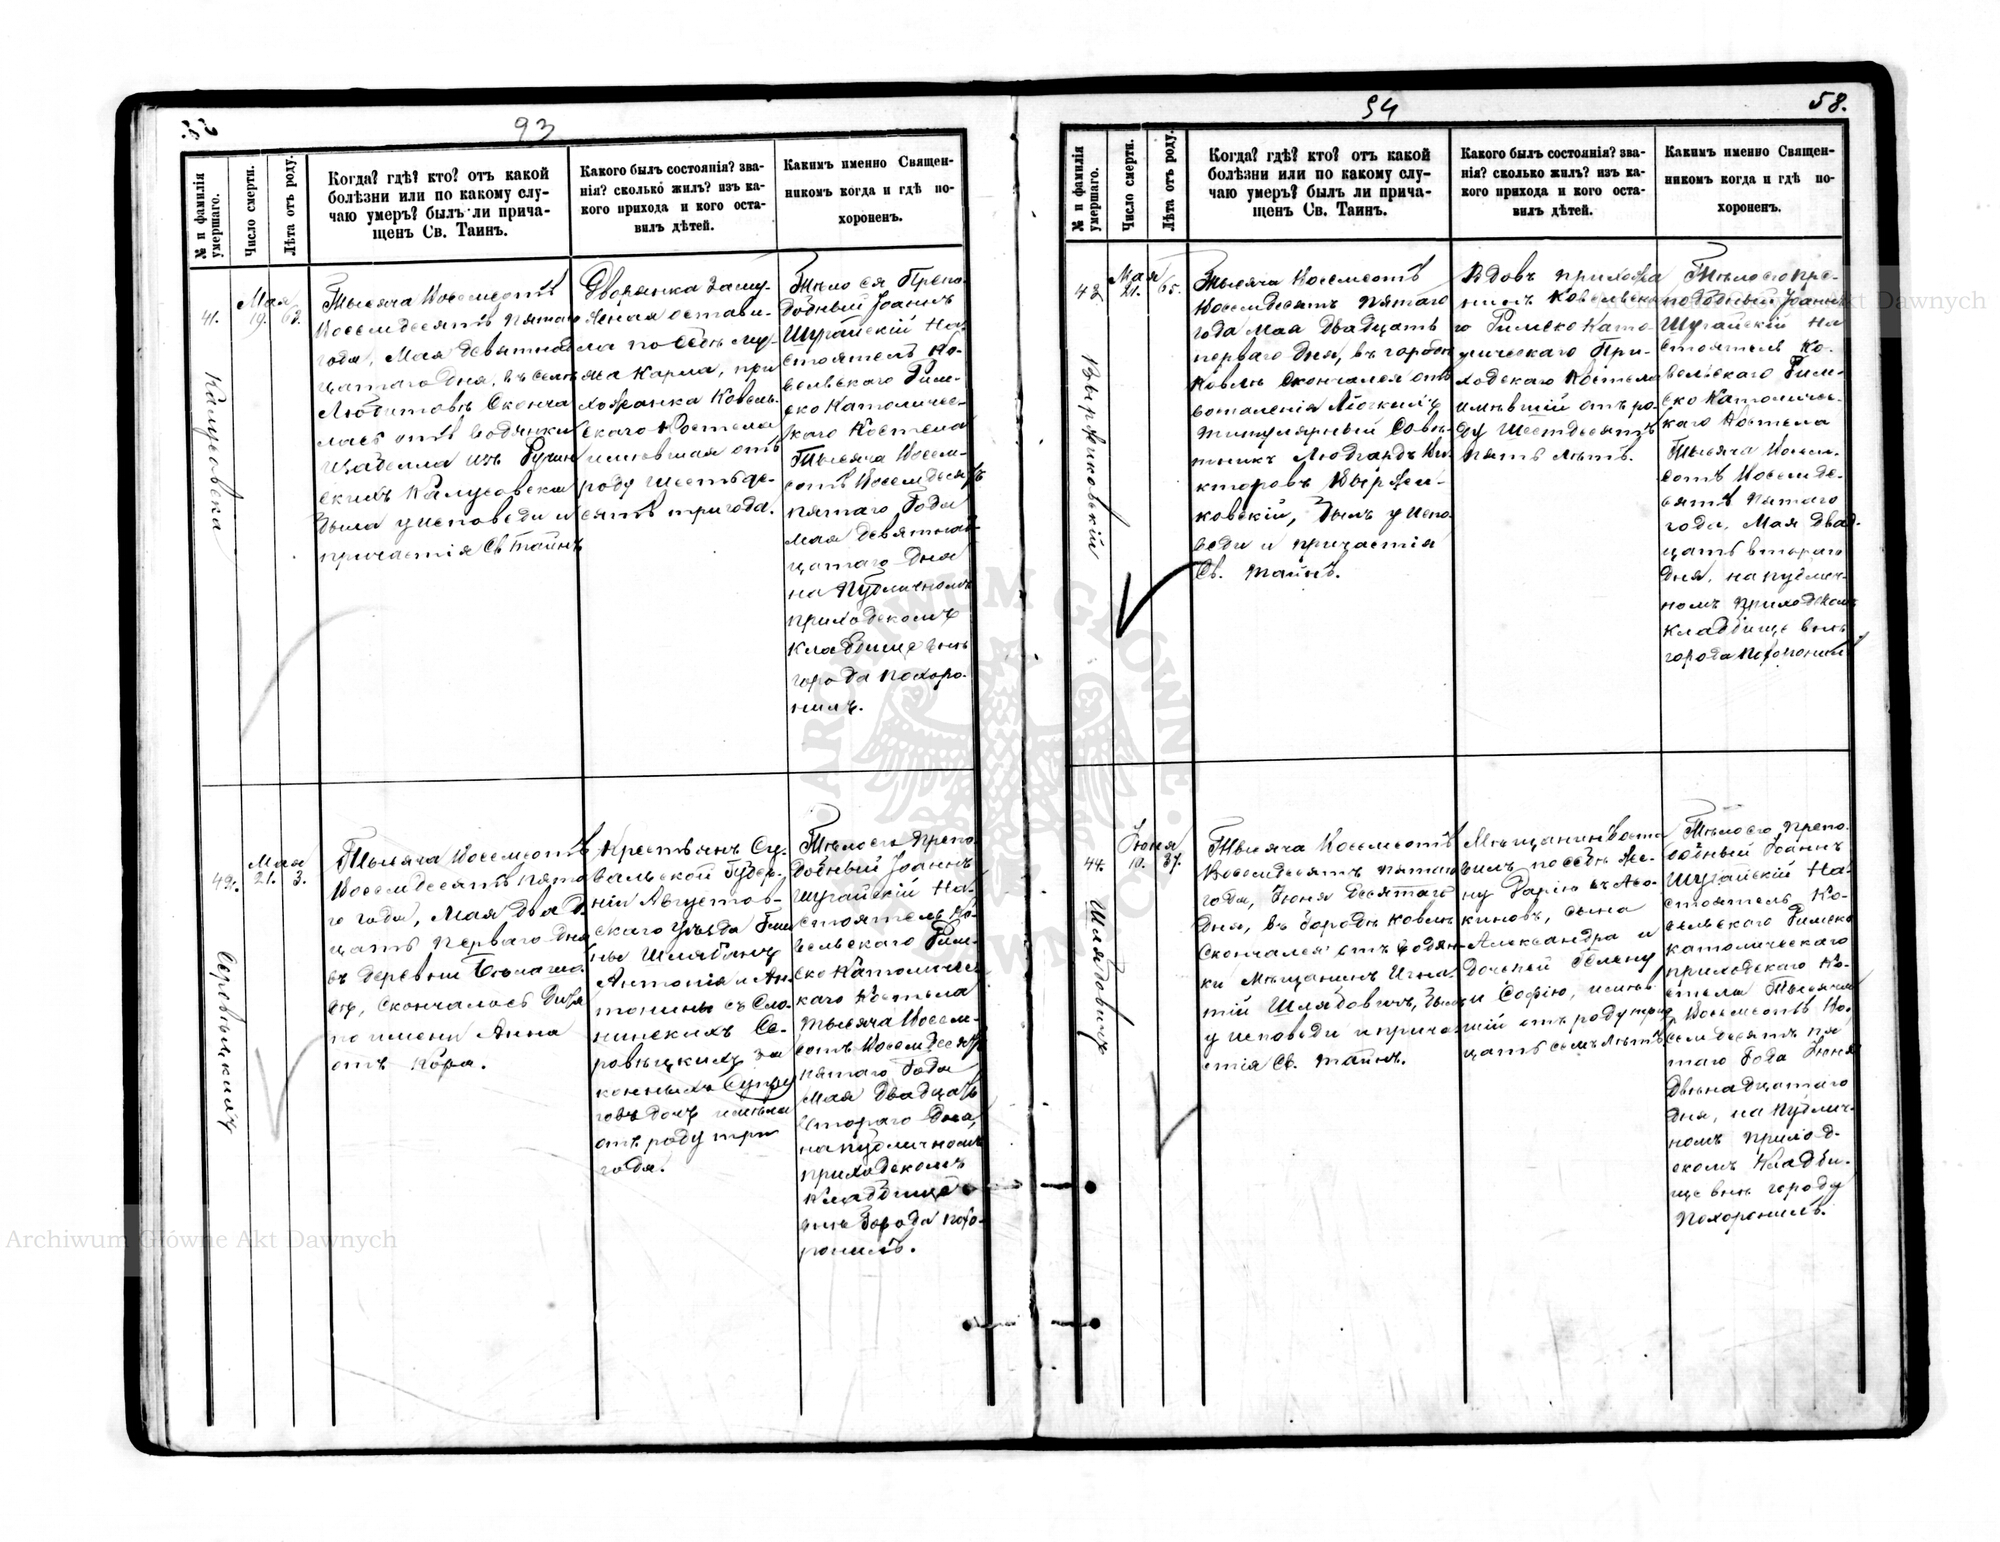 93
№ и фамилія умершаго.
Число смерти.
Лѣта отъ роду.
Когда? гдѣ? кто? отъ какой
болѣзни или по какому слу-
чаю умеръ? былъ ли прича-
щенъ Св. Таинъ.
Какого былъ состоянія? зва-
нія? сколько жилъ? изъ ка-
кого прихода и кого оста-
вилъ дѣтей.
Каким именно Священ-
никомъ когда и гдѣ по-
хороненъ.
41.
Мая
19.
63.
Тысяча Восемсотъ
Восемдесятъ Пятаго
года, Мая девятнад
цатаго дня, въ селѣ
Любитовѣ Сконча
лась отъ водянки
Изабелла изъ
была у исповѣди и
причастія Св Тайнъ
Дворянка Заму-
жная остави-
ла по себѣ му-
жа Карла, при
хожанка Ковель-
скаго Костела
имевшая отъ
роду шестьде-
сятъ три года.
Тѣло ся Препо-
добный Іоаннъ
Шугайскій На-
стоятель Ко-
вельскаго Рим-
ско Католичес-
каго Костела
Тысяча Восем-
сотъ Восемдесятъ
пятаго Года
Мая девятнад-
цатаго Дня
на Публичномъ
приходскомъ
Кладбищѣ внѣ
города похоро-
нилъ.
42.
Мая
21.
3.
Тысяча Восемсотъ
Восемдесятъ Пята
го года, Мая Двад
цать Перваго Дня
въ деревни
скончалось Дитя
по имени Анна
отъ Кора.
Крестьянъ Су-
вальской Губер-
ніи Августов-
скаго Уѣзда Гми
ны
Антонія и Ан-
тонины съ Сло-
нинскихъ Се-
ровѣцкихъ за
конныхъ Супру
говъ дочь имѣла
отъ роду три
года.
Тѣло ея Препо
добный Іоаннъ
Шугайскій На-
стоятель Ко-
вельскаго Рим-
ско Католичес
каго Костела
Тысяча Восем-
сотъ Восемдесятъ
пятаго Года
Мая Двадцать
втораго Дня,
на публичномъ
приходскомъ
Кладбищѣ
внѣ города похо-
ронилъ.
94
58.
№ и фамилія умершаго.
Число смерти.
Лѣта отъ роду.
Когда? гдѣ? кто? отъ какой
болѣзни или по какому слу-
чаю умеръ? былъ ли прича-
щенъ Св. Таинъ.
Какого былъ состоянія? зва-
нія? сколько жилъ? изъ ка-
кого прихода и кого оста-
вилъ дѣтей.
Каким именно Священ-
никомъ когда и гдѣ по-
хороненъ.
43.
Мая
21.
65.
Тысяча Восемсотъ
Восемдесятъ пятаго
года Мая двадцать
перваго дня, въ городѣ
Ковлѣ Скончался отъ
воспаленія Легкихъ
Титулярный Совѣ-
тникъ
ковскій, былъ у Испо
веди и причастія
Св. Тайнъ.
Вдовъ прихожа
нинъ Ковельска
го Римско Като-
лическаго При-
ходскаго Костела
имѣвшій отъ ро-
ду Шестдесятъ
пять лѣтъ.
Тѣло его Пре-
подобный Іоаннъ
Шугайскій На
стоятель Ко-
вельскаго Рим-
ско Католичес-
каго Костела
Тысяча Восем-
сотъ Восемде-
сятъ Пятаго
года, Мая двад-
цать втораго
дня, на публич-
номъ приходском
кладбище внѣ
города Похоронилъ
44.
Шлядовичъ
Іюня
10.
37.
Тысяча Восемсотъ
Восемдесятъ пятаго
года, Іюня десятаго
дня, въ городѣ Ковлѣ
Скончался отъ водян-
ки Мѣщанинъ Игна-
тій Шлядовичъ, былъ
у исповѣди и прича-
стія Св. Тайнъ.
Мѣщанинъ оста
вилъ по себѣ Же-
ну Дарію
сына
Александра и
дочерей Гелену
и Софію, имѣв
шій отъ роду трид
цать семь лѣтъ
Тѣло его Препо-
добный Іоаннъ
Шугайскій На-
стоятель Ко-
вельскаго Римско
католическаго
приходскаго Ко-
стела Тысяча
Восемсотъ Во-
семдесятъ пя
таго Года Іюня
Двѣнадцатаго
дня, на Публич-
номъ приход-
скомъ Кладби-
ще внѣ городу
Похоронилъ.
Archiwum Główne Akt Dawnych
Archiwum Główne Akt Dawnych
ARCHIWUM GŁÓWNE